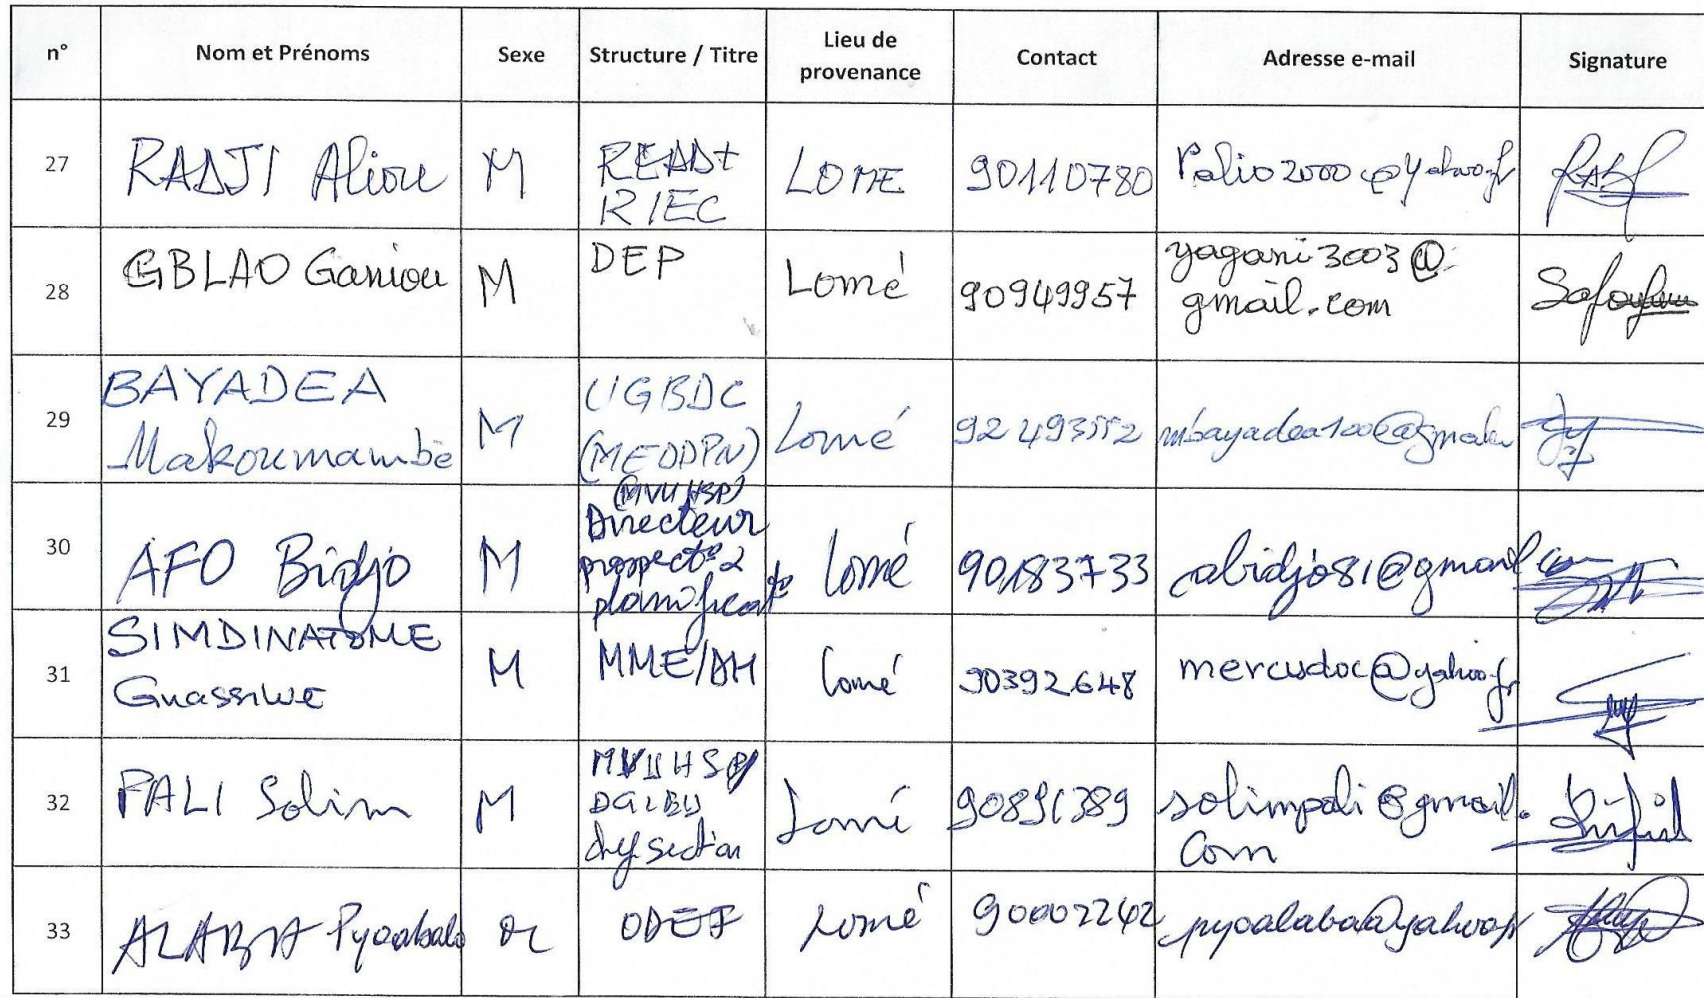 n° Nom et Prénoms Sexe Structure / Titre Lieu de provenance Contact Adresse e-mail Signature
27 RADJI Aliou M READ+ RIEC LOME 90110780 ralio2000@yahoo.fr
28 GBLAO Ganiou M DEP Lomé 90949957 yagani3003@gmail.com
29 BAYADEA Makoumambé M (MEDDPN) Lomé mbayadea100@gmail
30 AFO Bidjo M (MVUHSP) Directeur prospect° planificat° Lomé 90183733 abidjo81@gmail.com
31 SIMDINATOME Gnassiwe M MME/DH Lomé 90392648 mercusdoc@yahoo.fr
32 PALI Solim M MVUHSP/ chef section Lomé 90891389 solimpali@gmail.com
33 ALABA Pyoabalo ODEF Lomé 90002242 pyoalaba@yahoo.fr